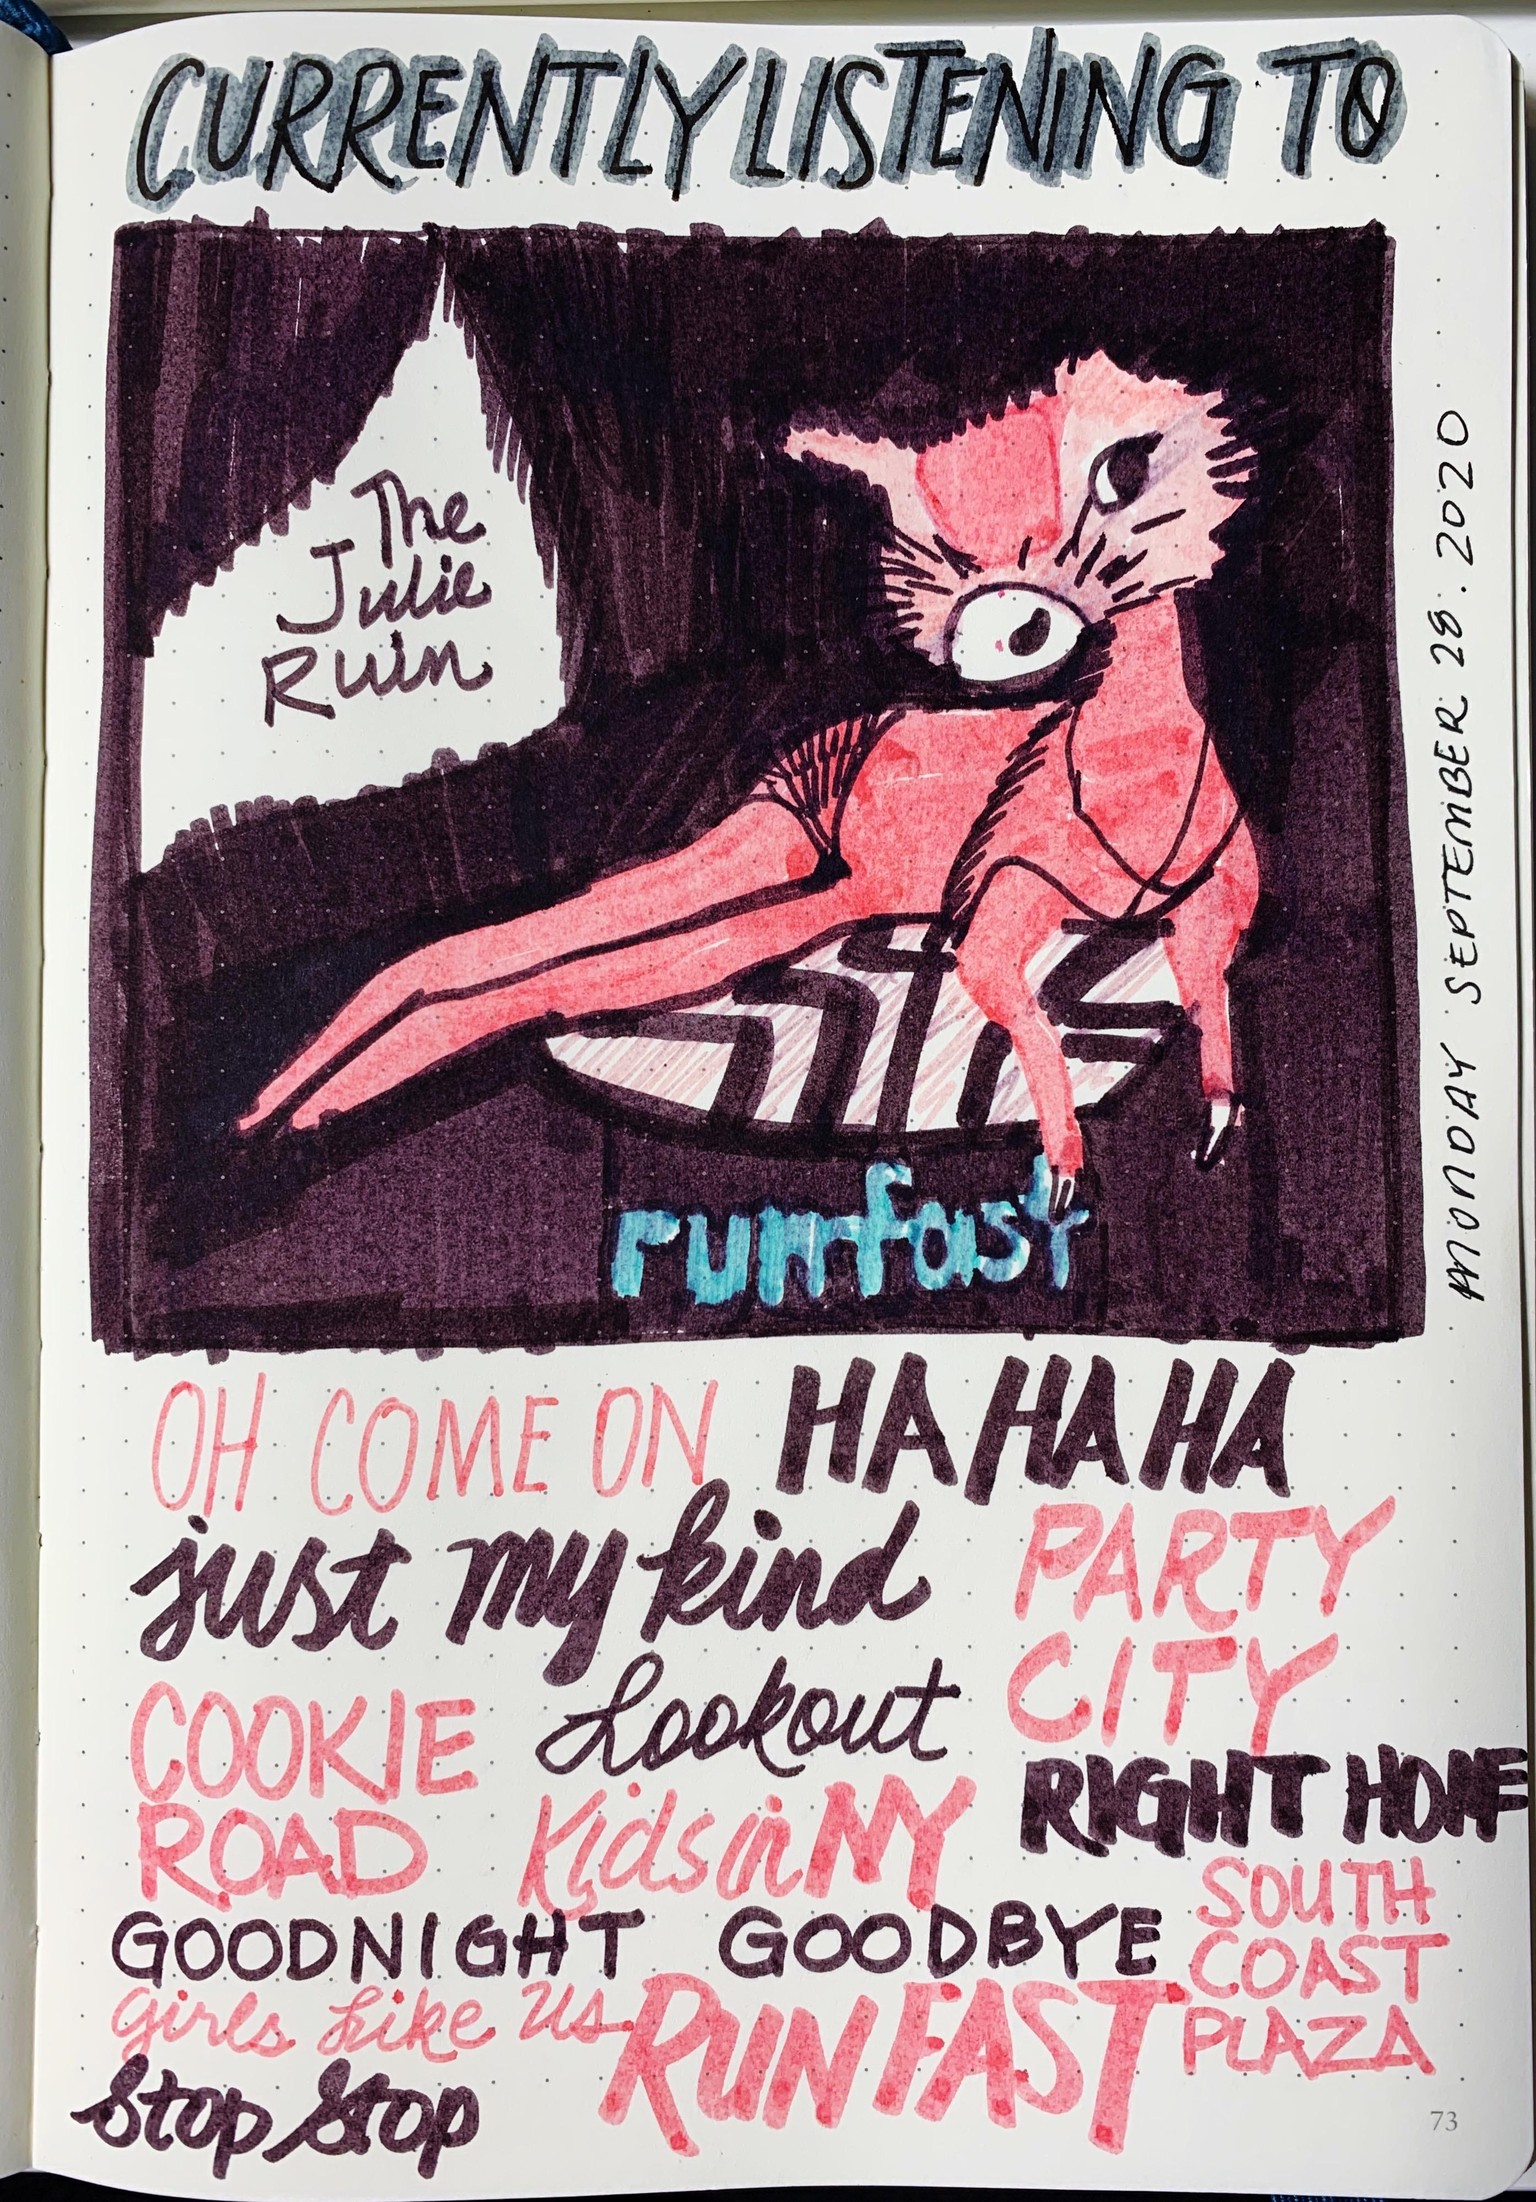 CURRENTLY LISTENING TO
The
Julie
Ruin
run fast
MONDAY SEPTEMBER 28.2020
OH COME ON
HA HA HA
just my kind
PARTY
CITY
COOKIE
ROAD
Lookout
Kids in NY
RIGHT HOME
GOODNIGHT GOODBYE
SOUTH
COAST
PLAZA
Girls Like Us
RUN FAST
Stop Stop
73